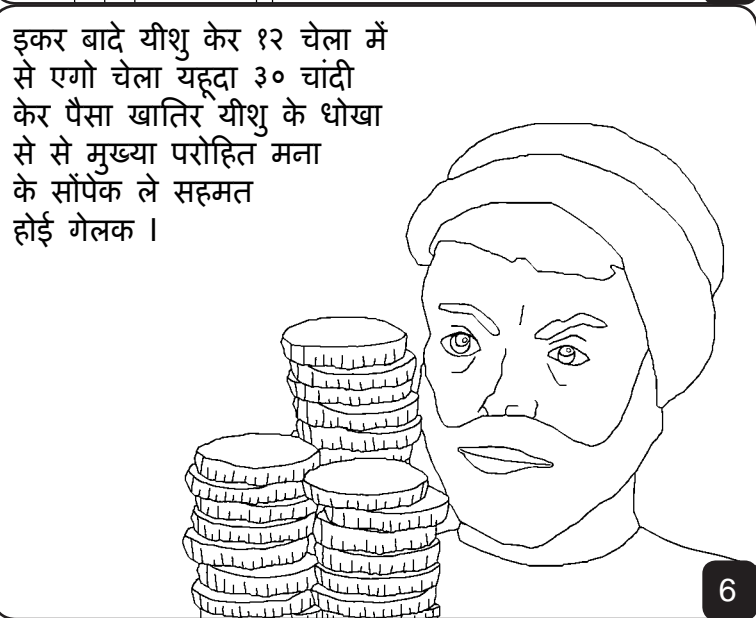 इकर बादे यीशु केर १२ चेला में
से एगो चेला यहूदा ३० चांदी
केर पैसा खातिर यीशु के धोखा
से से मुख्या परोहित मना
के सोंपेक ले सहमत
होई गेलक ।
6